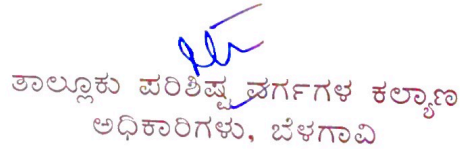 ತಾಲ್ಲೂಕು ಪರಿಶಿಷ್ಟ ವರ್ಗಗಳ ಕಲ್ಯಾಣ
ಅಧಿಕಾರಿಗಳು, ಬೆಳಗಾವಿ